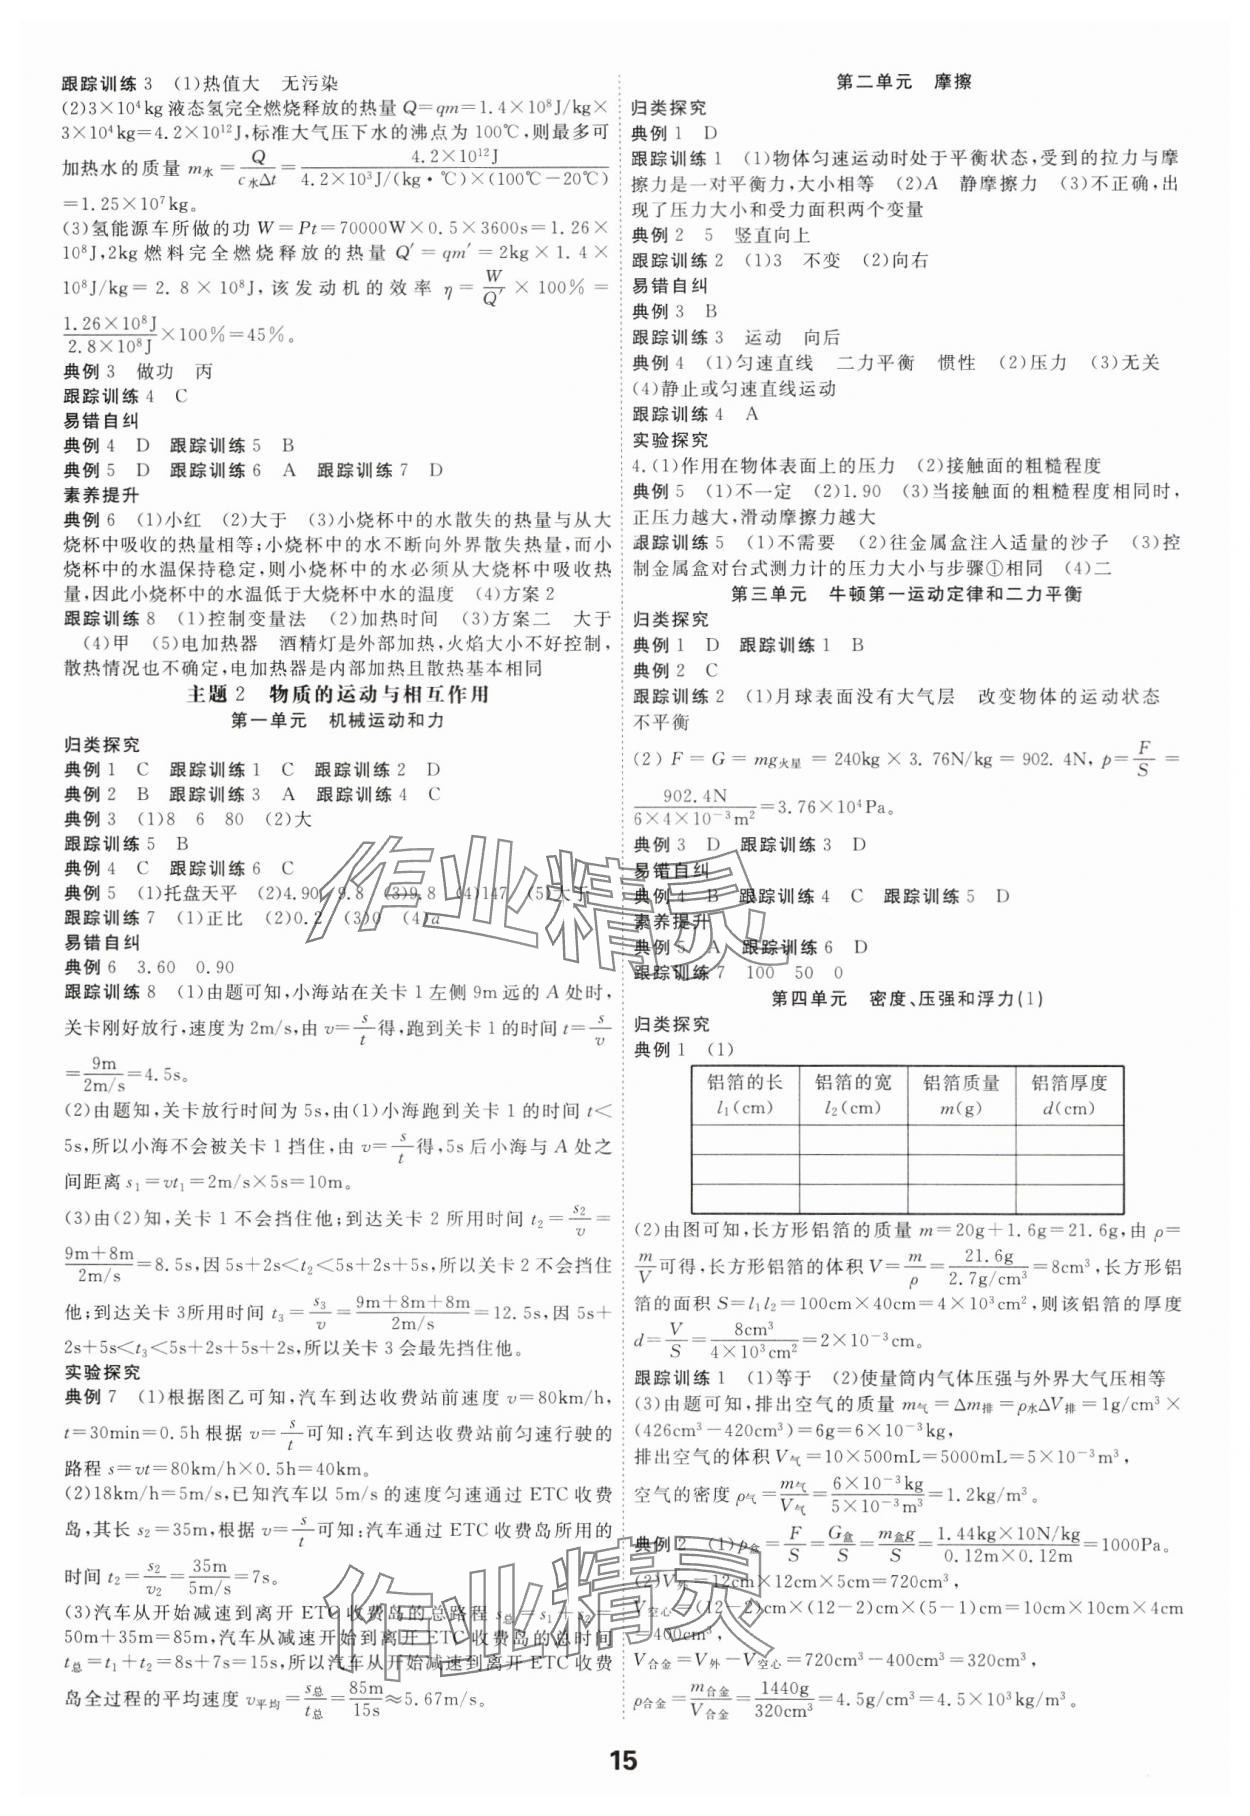 跟踪训练 3 (1)热值大 无污染
(2)3×10⁴kg 液态氢完全燃烧释放的热量 Q=qm=1.4×10⁸J/kg×
3×10⁴kg=4.2×10¹²J,标准大气压下水的沸点为 100℃,则最多可
加热水的质量 m水=Q/(c水Δt)=4.2×10¹²J/[4.2×10³J/(kg·℃)×(100℃-20℃)]
=1.25×10⁷kg。
(3)氢能源车所做的功 W=Pt=70000W×0.5×3600s=1.26×
10⁸J,2kg 燃料完全燃烧释放的热量 Q′=qm′=2kg×1.4×
10⁸J/kg=2.8×10⁸J,该发动机的效率 η=W/Q′×100%=
1.26×10⁸J/2.8×10⁸J×100%=45%。
典例 3 做功 丙
跟踪训练 4 C
易错自纠
典例 4 D 跟踪训练 5 B
典例 5 D 跟踪训练 6 A 跟踪训练 7 D
素养提升
典例 6 (1)小红 (2)大于 (3)小烧杯中的水散失的热量与从大
烧杯中吸收的热量相等;小烧杯中的水不断向外界散失热量,而小
烧杯中的水温保持稳定,则小烧杯中的水必须从大烧杯中吸收热
量,因此小烧杯中的水温低于大烧杯中水的温度 (4)方案 2
跟踪训练 8 (1)控制变量法 (2)加热时间 (3)方案二 大于
(4)甲 (5)电加热器 酒精灯是外部加热,火焰大小不好控制,
散热情况也不确定,电加热器是内部加热且散热基本相同
主题 2 物质的运动与相互作用
第一单元 机械运动和力
归类探究
典例 1 C 跟踪训练 1 C 跟踪训练 2 D
典例 2 B 跟踪训练 3 A 跟踪训练 4 C
典例 3 (1)8 6 80 (2)大
跟踪训练 5 B
典例 4 C 跟踪训练 6 C
典例 5 (1)托盘天平 (2)4.90 9.8 (3)9.8 (4)147 (5)大于
跟踪训练 7 (1)正比 (2)0.2 (3)0 (4)a
易错自纠
典例 6 3.60 0.90
跟踪训练 8 (1)由题可知,小海站在关卡 1 左侧 9m 远的 A 处时,
关卡刚好放行,速度为 2m/s,由 v=s/t得,跑到关卡 1 的时间 t=s/v
=9m/2m/s=4.5s。
(2)由题知,关卡放行时间为 5s,由(1)小海跑到关卡 1 的时间 t<
5s,所以小海不会被关卡 1 挡住,由 v=s/t得,5s 后小海与 A 处之
间距离 s₁=vt₁=2m/s×5s=10m。
(3)由(2)知,关卡 1 不会挡住他;到达关卡 2 所用时间 t₂=s₂/v=
(9m+8m)/2m/s=8.5s,因 5s+2s<t₂<5s+2s+5s,所以关卡 2 不会挡住
他;到达关卡 3所用时间 t₃=s₃/v=(9m+8m+8m)/2m/s=12.5s,因 5s+
2s+5s<t₃<5s+2s+5s+2s,所以关卡 3 会最先挡住他。
实验探究
典例 7 (1)根据图乙可知,汽车到达收费站前速度 v=80km/h,
t=30min=0.5h 根据 v=s/t可知:汽车到达收费站前匀速行驶的
路程 s=vt=80km/h×0.5h=40km。
(2)18km/h=5m/s,已知汽车以 5m/s 的速度匀速通过 ETC 收费
岛,其长 s₂=35m,根据 v=s/t可知:汽车通过 ETC 收费岛所用的
时间 t₂=s₂/v₂=35m/5m/s=7s。
(3)汽车从开始减速到离开 ETC 收费岛的总路程 s总=s₁+s₂=
50m+35m=85m,汽车从减速开始到离开 ETC 收费岛的总时间
t总=t₁+t₂=8s+7s=15s,所以汽车从开始减速到离开 ETC 收费
岛全过程的平均速度 v平均=s总/t总=85m/15s≈5.67m/s。
第二单元 摩擦
归类探究
典例 1 D
跟踪训练 1 (1)物体匀速运动时处于平衡状态,受到的拉力与摩
擦力是一对平衡力,大小相等 (2)A 静摩擦力 (3)不正确,出
现了压力大小和受力面积两个变量
典例 2 5 竖直向上
跟踪训练 2 (1)3 不变 (2)向右
易错自纠
典例 3 B
跟踪训练 3 运动 向后
典例 4 (1)匀速直线 二力平衡 惯性 (2)压力 (3)无关
(4)静止或匀速直线运动
跟踪训练 4 A
实验探究
4.(1)作用在物体表面上的压力 (2)接触面的粗糙程度
典例 5 (1)不一定 (2)1.90 (3)当接触面的粗糙程度相同时,
正压力越大,滑动摩擦力越大
跟踪训练 5 (1)不需要 (2)往金属盒注入适量的沙子 (3)控
制金属盒对台式测力计的压力大小与步骤①相同 (4)二
第三单元 牛顿第一运动定律和二力平衡
归类探究
典例 1 D 跟踪训练 1 B
典例 2 C
跟踪训练 2 (1)月球表面没有大气层 改变物体的运动状态
不平衡
(2)F=G=mg火星=240kg×3.76N/kg=902.4N,p=F/S=
902.4N/6×4×10⁻³m²=3.76×10⁴Pa。
典例 3 D 跟踪训练 3 D
易错自纠
典例 4 B 跟踪训练 4 C 跟踪训练 5 D
素养提升
典例 5 A 跟踪训练 6 D
跟踪训练 7 100 50 0
第四单元 密度、压强和浮力(1)
归类探究
典例 1 (1)
铝箔的长 铝箔的宽 铝箔质量 铝箔厚度
l₁(cm) l₂(cm) m(g) d(cm)
(2)由图可知,长方形铝箔的质量 m=20g+1.6g=21.6g,由 ρ=
m/V可得,长方形铝箔的体积 V=m/ρ=21.6g/2.7g/cm³=8cm³,长方形铝
箔的面积 S=l₁l₂=100cm×40cm=4×10³cm²,则该铝箔的厚度
d=V/S=8cm³/4×10³cm²=2×10⁻³cm。
跟踪训练 1 (1)等于 (2)使量筒内气体压强与外界大气压相等
(3)由题可知,排出空气的质量 m气=Δm排=ρ水ΔV排=1g/cm³×
(426cm³-420cm³)=6g=6×10⁻³kg,
排出空气的体积 V气=10×500mL=5000mL=5×10⁻³m³,
空气的密度 ρ气=m气/V气=6×10⁻³kg/5×10⁻³m³=1.2kg/m³。
典例 2 (1)p盒=F/S=G盒/S=m盒g/S=1.44kg×10N/kg/0.12m×0.12m=1000Pa。
(2)V外=12cm×12cm×5cm=720cm³,
V空心=(12-2)cm×(12-2)cm×(5-1)cm=10cm×10cm×4cm
=400cm³,
V合金=V外-V空心=720cm³-400cm³=320cm³,
ρ合金=m合金/V合金=1440g/320cm³=4.5g/cm³=4.5×10³kg/m³。
15
作业精灵
作业精灵